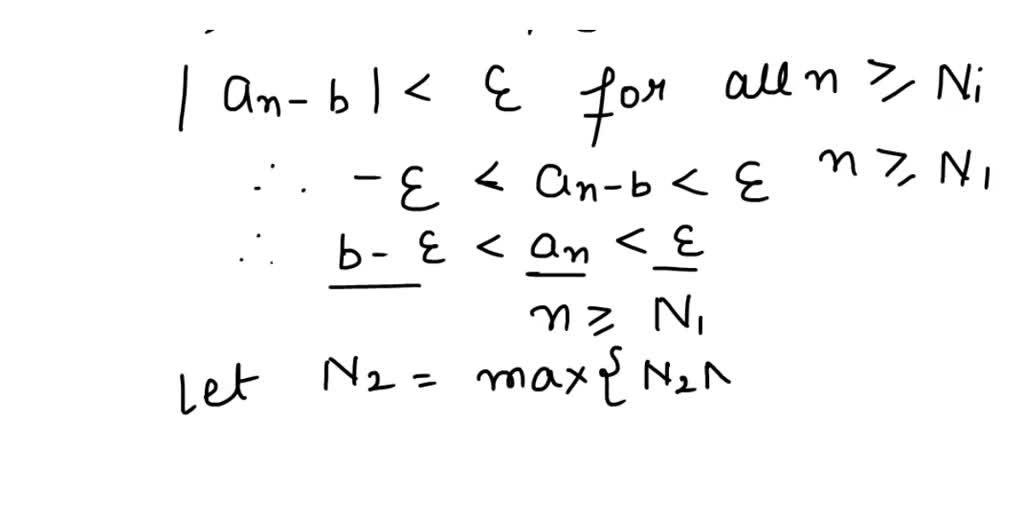 | an - b | < ε for all n ≥ Ni
∴ - ε < an - b < ε n ≥ N1
∴ b - ε < an < ε
n ≥ N1
Let N2 = max { N2